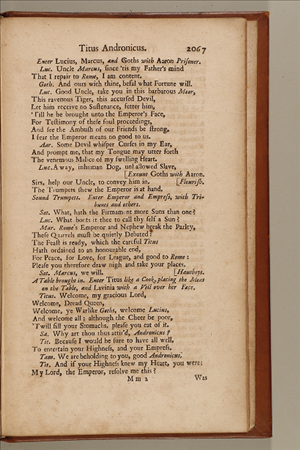 Titus Andronicus. 2067
Enter Lucius, Marcus, and Goths with Aaron Prisoner.
Luc. Uncle Marcus, since 'tis my Father's mind
That I repair to Rome, I am content.
Goth. And ours with thine, befal what Fortune will.
Luc. Good Uncle, take you in this barbarous Moor,
This ravenous Tiger, this accursed Devil,
Let him receive no Sustenance, fetter him,
'Till he be brought unto the Emperor's Face,
For Testimony of these foul proceedings,
And see the Ambush of our Friends be strong,
I fear the Emperor means no good to us.
Aar. Some Devil whisper Curses in my Ear,
And prompt me, that my Tongue may utter forth
The venomous Malice of my swelling Heart.
Luc. Away, inhuman Dog, unhallowed Slave,
[Exeunt Goths with Aaron.
Sirs, help our Uncle, to convey him in. [Flourish.
The Trumpets shew the Emperor is at hand.
Sound Trumpets. Enter Emperor and Empress, with Tri-
bunes and others.
Sat. What, hath the Firmament more Suns than one?
Luc. What boots it thee to call thy self a Sun?
Mar. Rome's Emperor and Nephew break the Parley,
These Quarrels must be quietly Debated?
The Feast is ready, which the careful Titus
Hath ordained to an honourable end,
For Peace, for Love, for League, and good to Rome:
Please you therefore draw nigh and take your places.
Sat. Marcus, we will. [Hautboys.
A Table brought in. Enter Titus like a Cook, placing the Meat
on the Table, and Lavinia with a Veil over her Face.
Titus. Welcome, my gracious Lord,
Welcome, Dread Queen,
Welcome, ye Warlike Goths, welcome Lucius,
And welcome all; although the Cheer be poor,
'Twill fill your Stomachs, please you eat of it.
Sa. Why art thou thus attir'd, Andronicus?
Tit. Because I would be sure to have all well,
To entertain your Highness, and your Empress.
Tam. We are beholding to you, good Andronicus.
Tit. And if your Highness knew my Heart, you were:
My Lord, the Emperor, resolve me this?
M m 2 Was